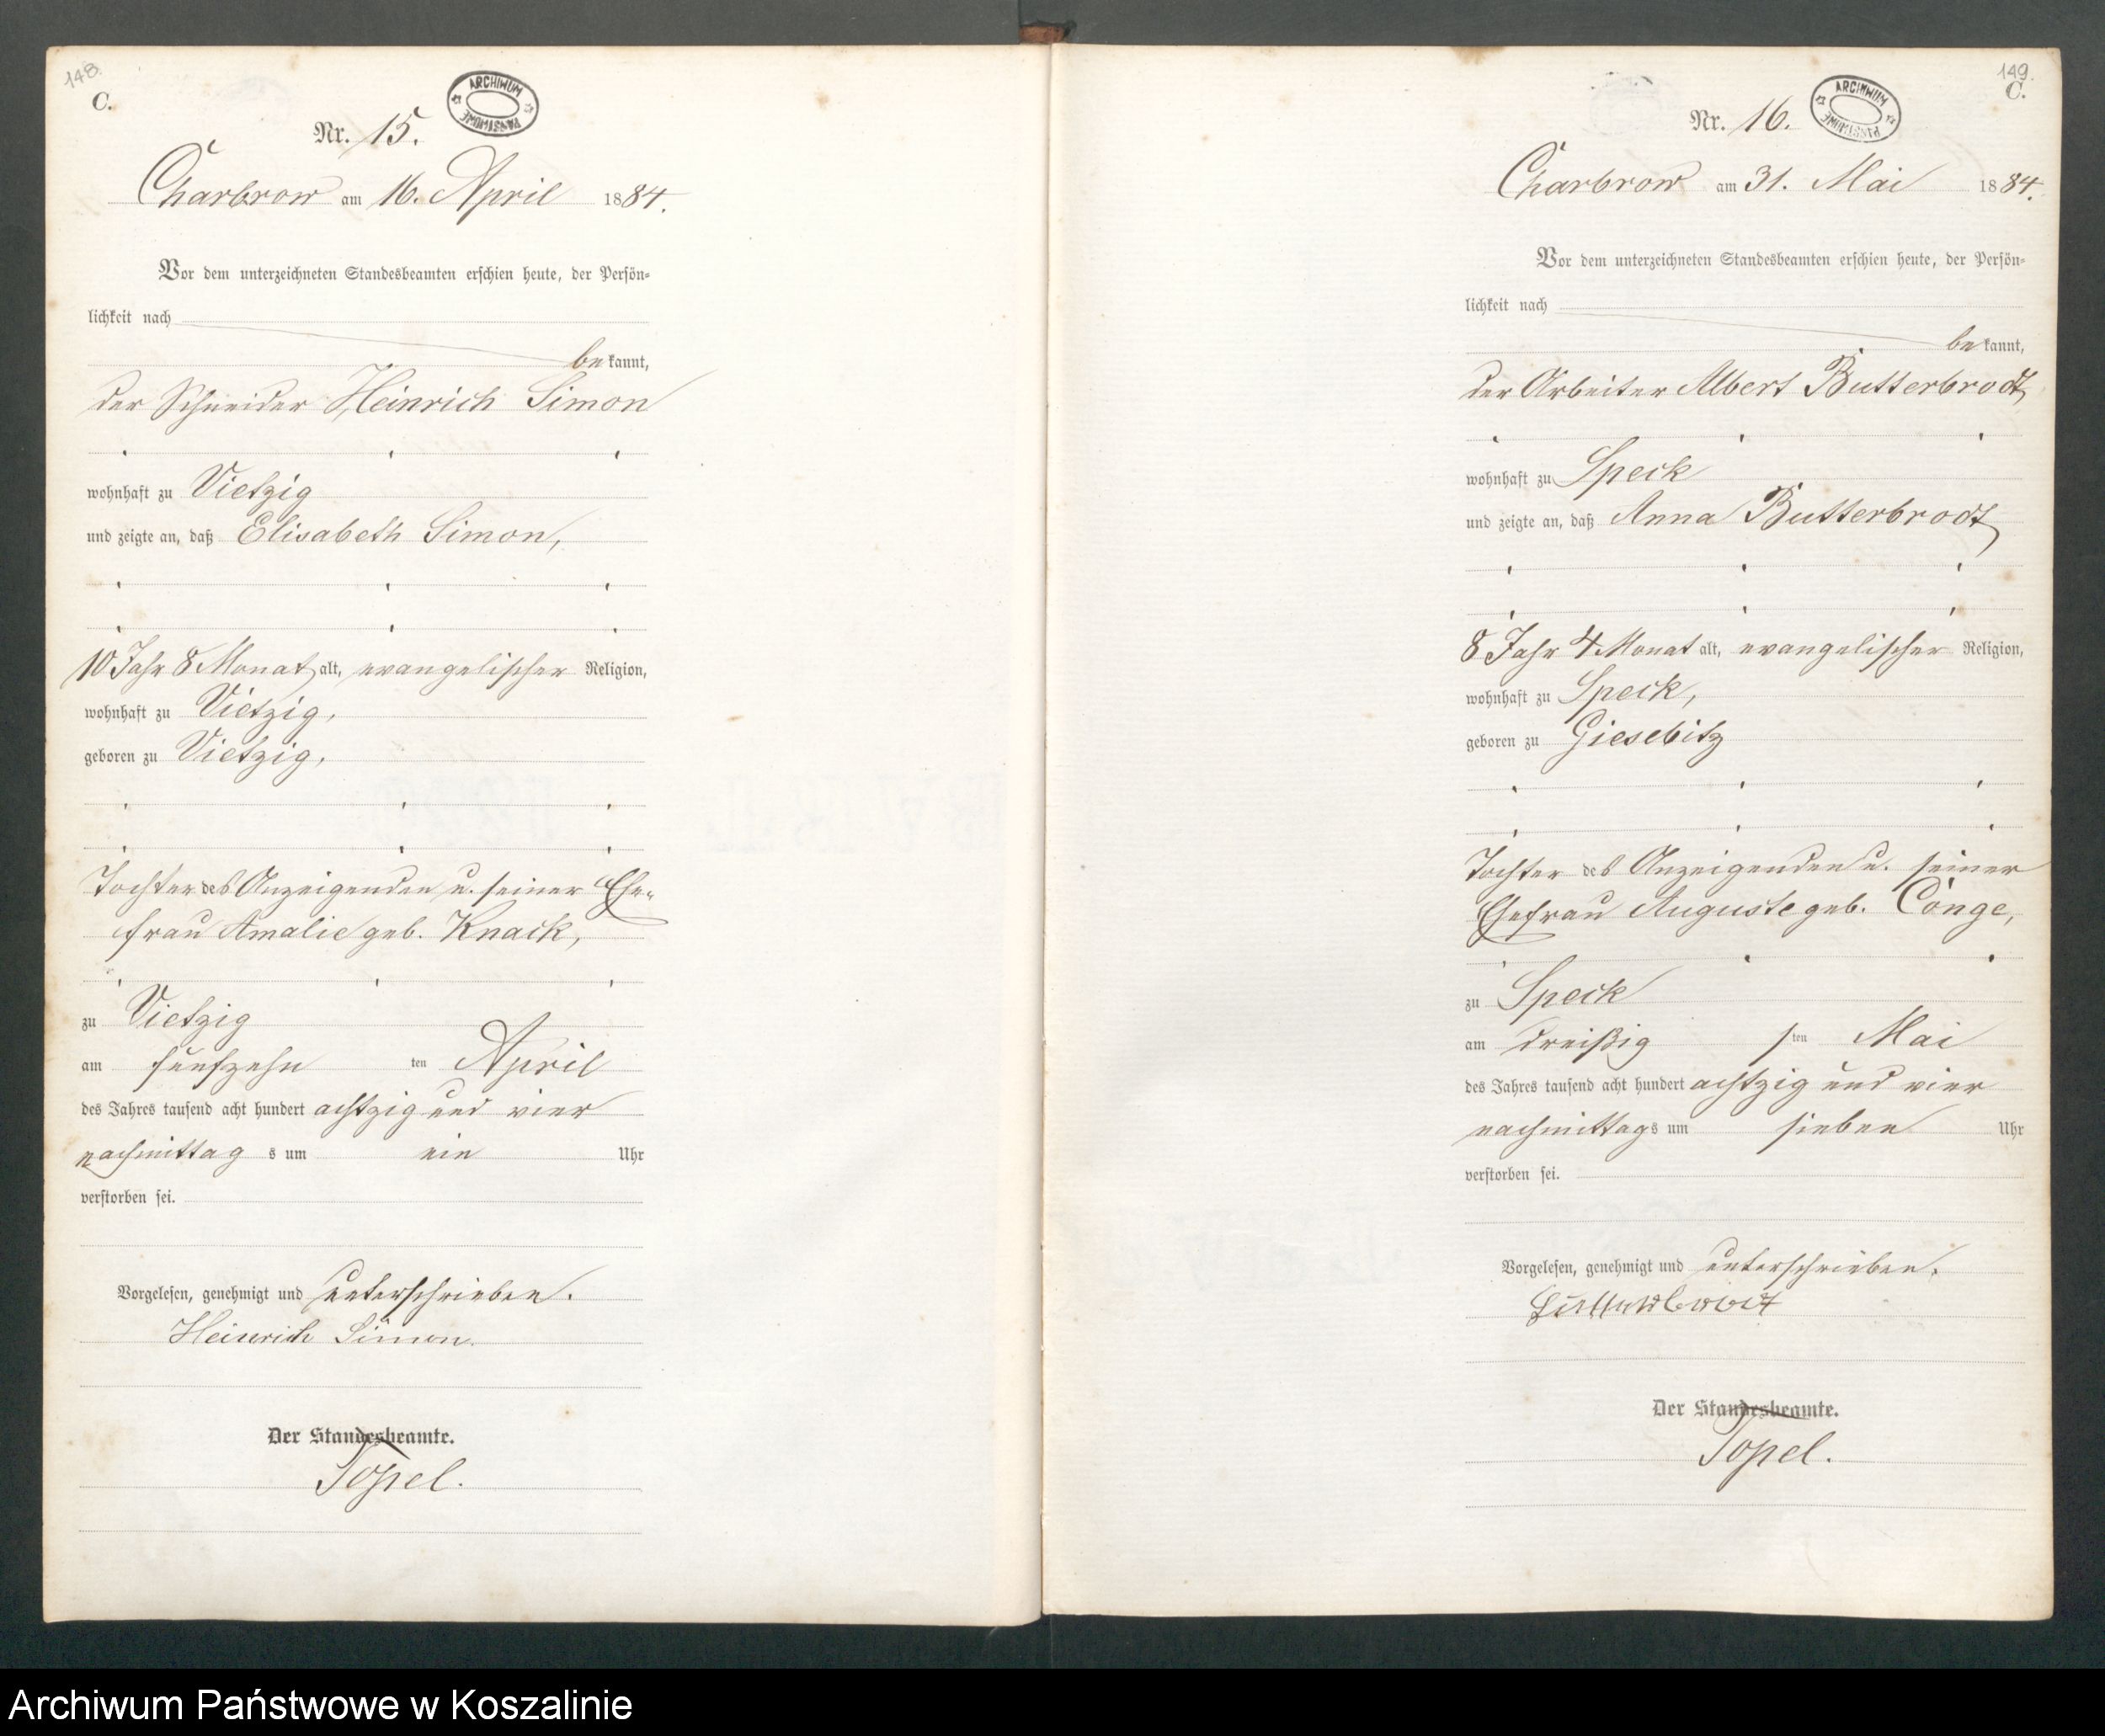 148.
C.
ARCHIWUM PAŃSTWOWE
Nr. 15.
Charbrow am 16. April 1884.
Vor dem unterzeichneten Standesbeamten erschien heute, der Persön-
lichkeit nach
bekannt,
der Schneider Heinrich Simon
wohnhaft zu Vietzig
und zeigte an, daß Elisabeth Simon,
10 Jahr 8 Monat alt, evangelischer Religion,
wohnhaft zu Vietzig,
geboren zu Vietzig,
Tochter des Anzeigenden u. seiner Ehe-
frau Amalie geb. Knack,
zu Vietzig
am fünfzehn ten April
des Jahres tausend acht hundert achtzig und vier
nachmittags um ein Uhr
verstorben sei.
Vorgelesen, genehmigt und unterschrieben.
Heinrich Simon.
Der Standesbeamte.
Topel.
149.
C.
Nr. 16.
ARCHIWUM PAŃSTWOWE
Charbrow am 31. Mai 1884.
Vor dem unterzeichneten Standesbeamten erschien heute, der Persön-
lichkeit nach
bekannt,
der Arbeiter Albert Butterbrodt,
wohnhaft zu Speck
und zeigte an, daß Anna Butterbrodt,
8 Jahr 4 Monat alt, evangelischer Religion,
wohnhaft zu Speck,
geboren zu Giesebitz
Tochter des Anzeigenden u. seiner
Ehefrau Auguste geb. Conge,
zu Speck
am dreißig sten Mai
des Jahres tausend acht hundert achtzig und vier
nachmittags um sieben Uhr
verstorben sei.
Vorgelesen, genehmigt und unterschrieben.
Der Standesbeamte.
Topel.
Archiwum Państwowe w Koszalinie